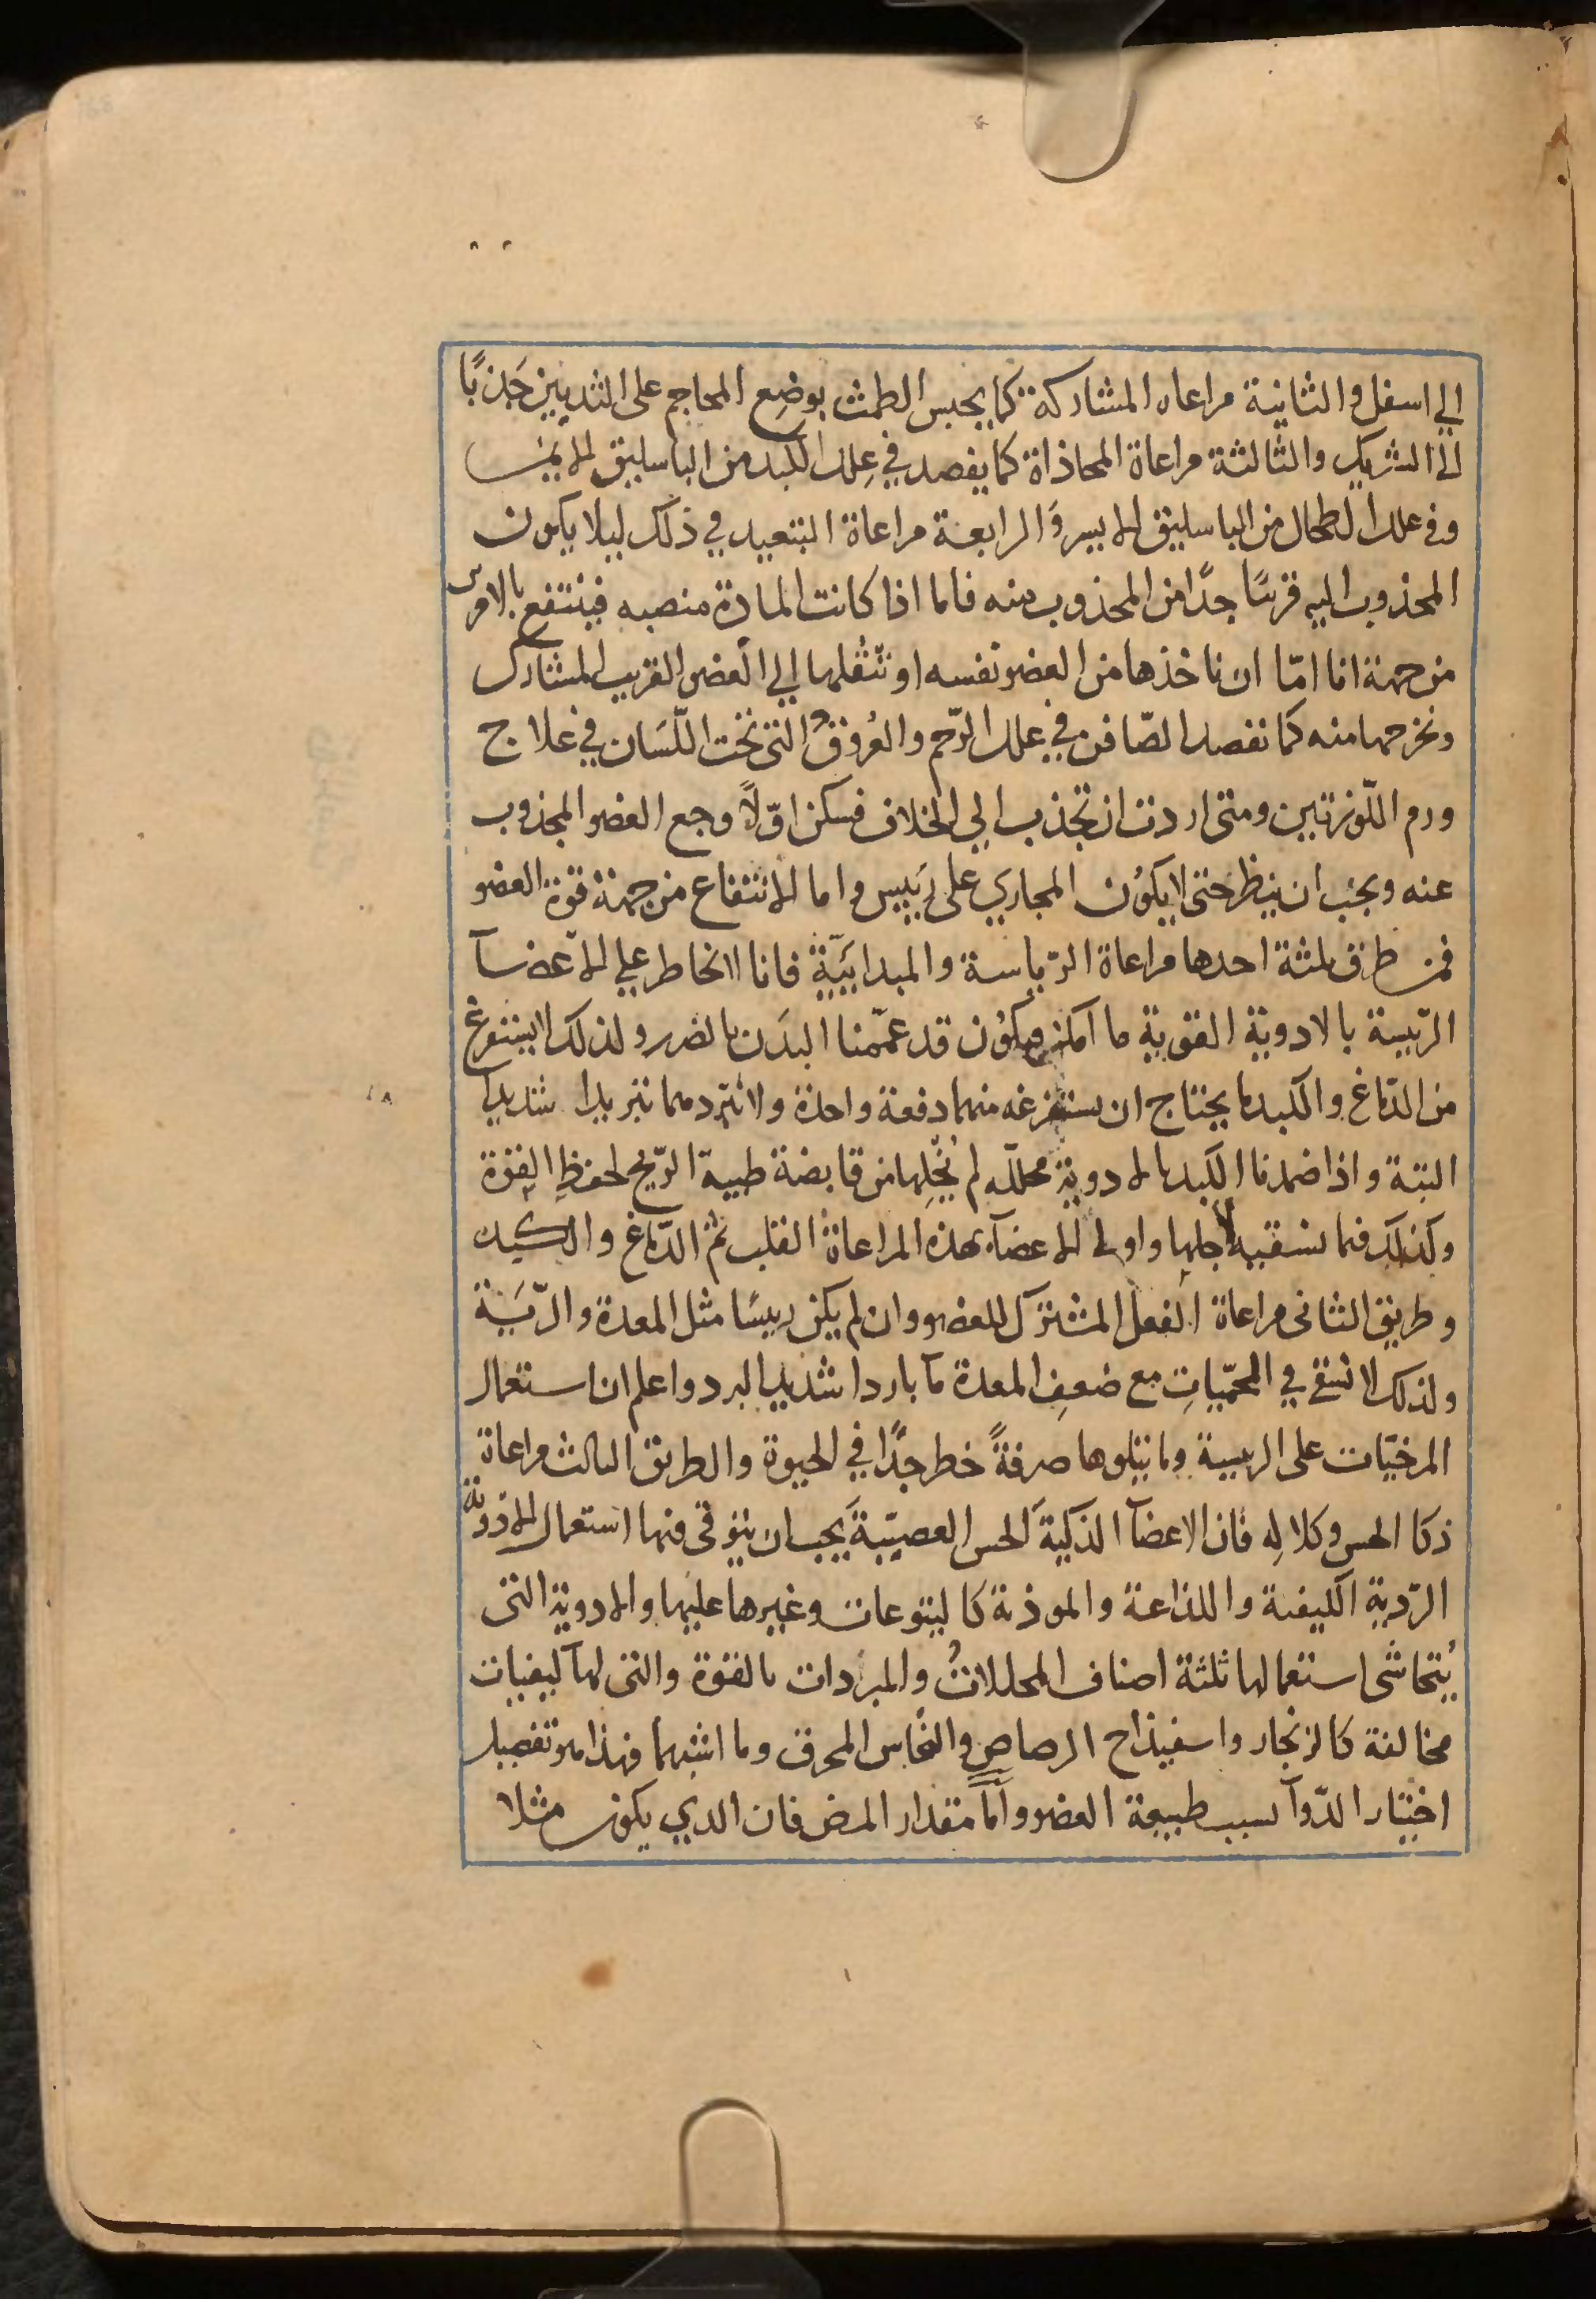 الي اسفل والثانية مراعاه المشاركة كما يحبس الطمث بوضع المحاجم على الثديين جذبًا
الى الشريك والثالثة مراعاة المحاذاة كما يفصد في علل الكبد من الباسليق الايمن
وفي علل الطحال من الباسليق الايسر والرابعة مراعاة التبعيد في ذلك ليلا يكون
المجذوب اليه قريبًا جدًا من المجذوب منه فاما اذا كانت المادة منصبه فينتفع بالامرين
من جهة انا امّا ان ناخذها من العضو نفسه او ننقلها الي العضو القريب المشارك
ونخرجها منه كما نفصد الصّافن في علل الرّحم والعروق التي تحت اللّسان في علاج
ورم اللّوزتين ومتى اردت ان تجذب الي الخلاف فسكن اوّلاً وجع العضو المجذوب
عنه ويجب ان ينظر حتى لا يكون المجاري على رييس واما الانتفاع من جهة قوة العضو
فمن طرق ثلثة احدها مراعاة الرّياسة والمبدايّيّة فانا لا نخاطر على الاعضآ
الرّيسة بالادوية القوية ما امكن ويكون قد عمّمنا البدن بالضرر ولذلك لا يستفرغ
من الدّماغ والكبد ما يحتاج ان يستفرغه منهما دفعة واحدة ولا نبّردهما تبريدا شديدا
البتة واذا ضمدنا الكبد بالادوية محللّه لم نخلها من قابضة طيبة الرّيح لحفظ القوة
وكذلك فيما نسقيه لاجلها واولى الاعضآ بهذه المراعاة القلب ثمّ الدّماغ والكبد
وطريق الثانى مراعاة الفعل المشترك للعضو وان لم يكن رييسًا مثل المعدة والرّيَة
ولذلك لا نسقي في الحمّيات مع ضعف المعدة مآ باردا شديد البرد واعلم ان استعمال
المرخيّات على الرييسة وما يتلوها صرفةً خطر جدًّا في الحيوة والطريق الثالث مراعاة
ذكا الحس وكلاله فان الاعضآ الذكية الحس العصبيّة يجب ان يتوقى فيها استعمال الادوية
الرّدية الكيفية واللذاعة والموذية كاليتوعات وغيرها عليها والادوية التى
يُتحاشى استعمالها ثلثة اصناف المحللات والمبردات بالقوة والتى لها كيفيات
مخالفة كالزنجار واسفيذاج الرصاص والنحاس المحرق وما اشبهما فهذا هو تفصيل
اختيار الدّوآ بسبب طبيعة العضو وامّا مقدار المرض فان الذي يكون مثلا